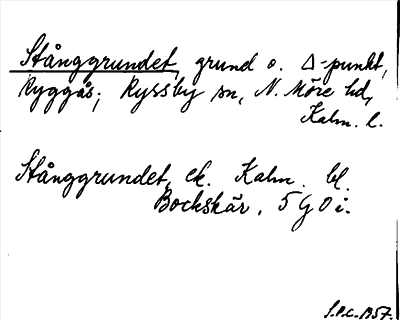 Stånggrundet, grund o. Δ-punkt,
Ryggås; Ryssby sn, N. Möre hd,
Kalm. l.
Stånggrundet, ek. Kalm. bl.
Bockskär, 5 G 0 i.
1957.